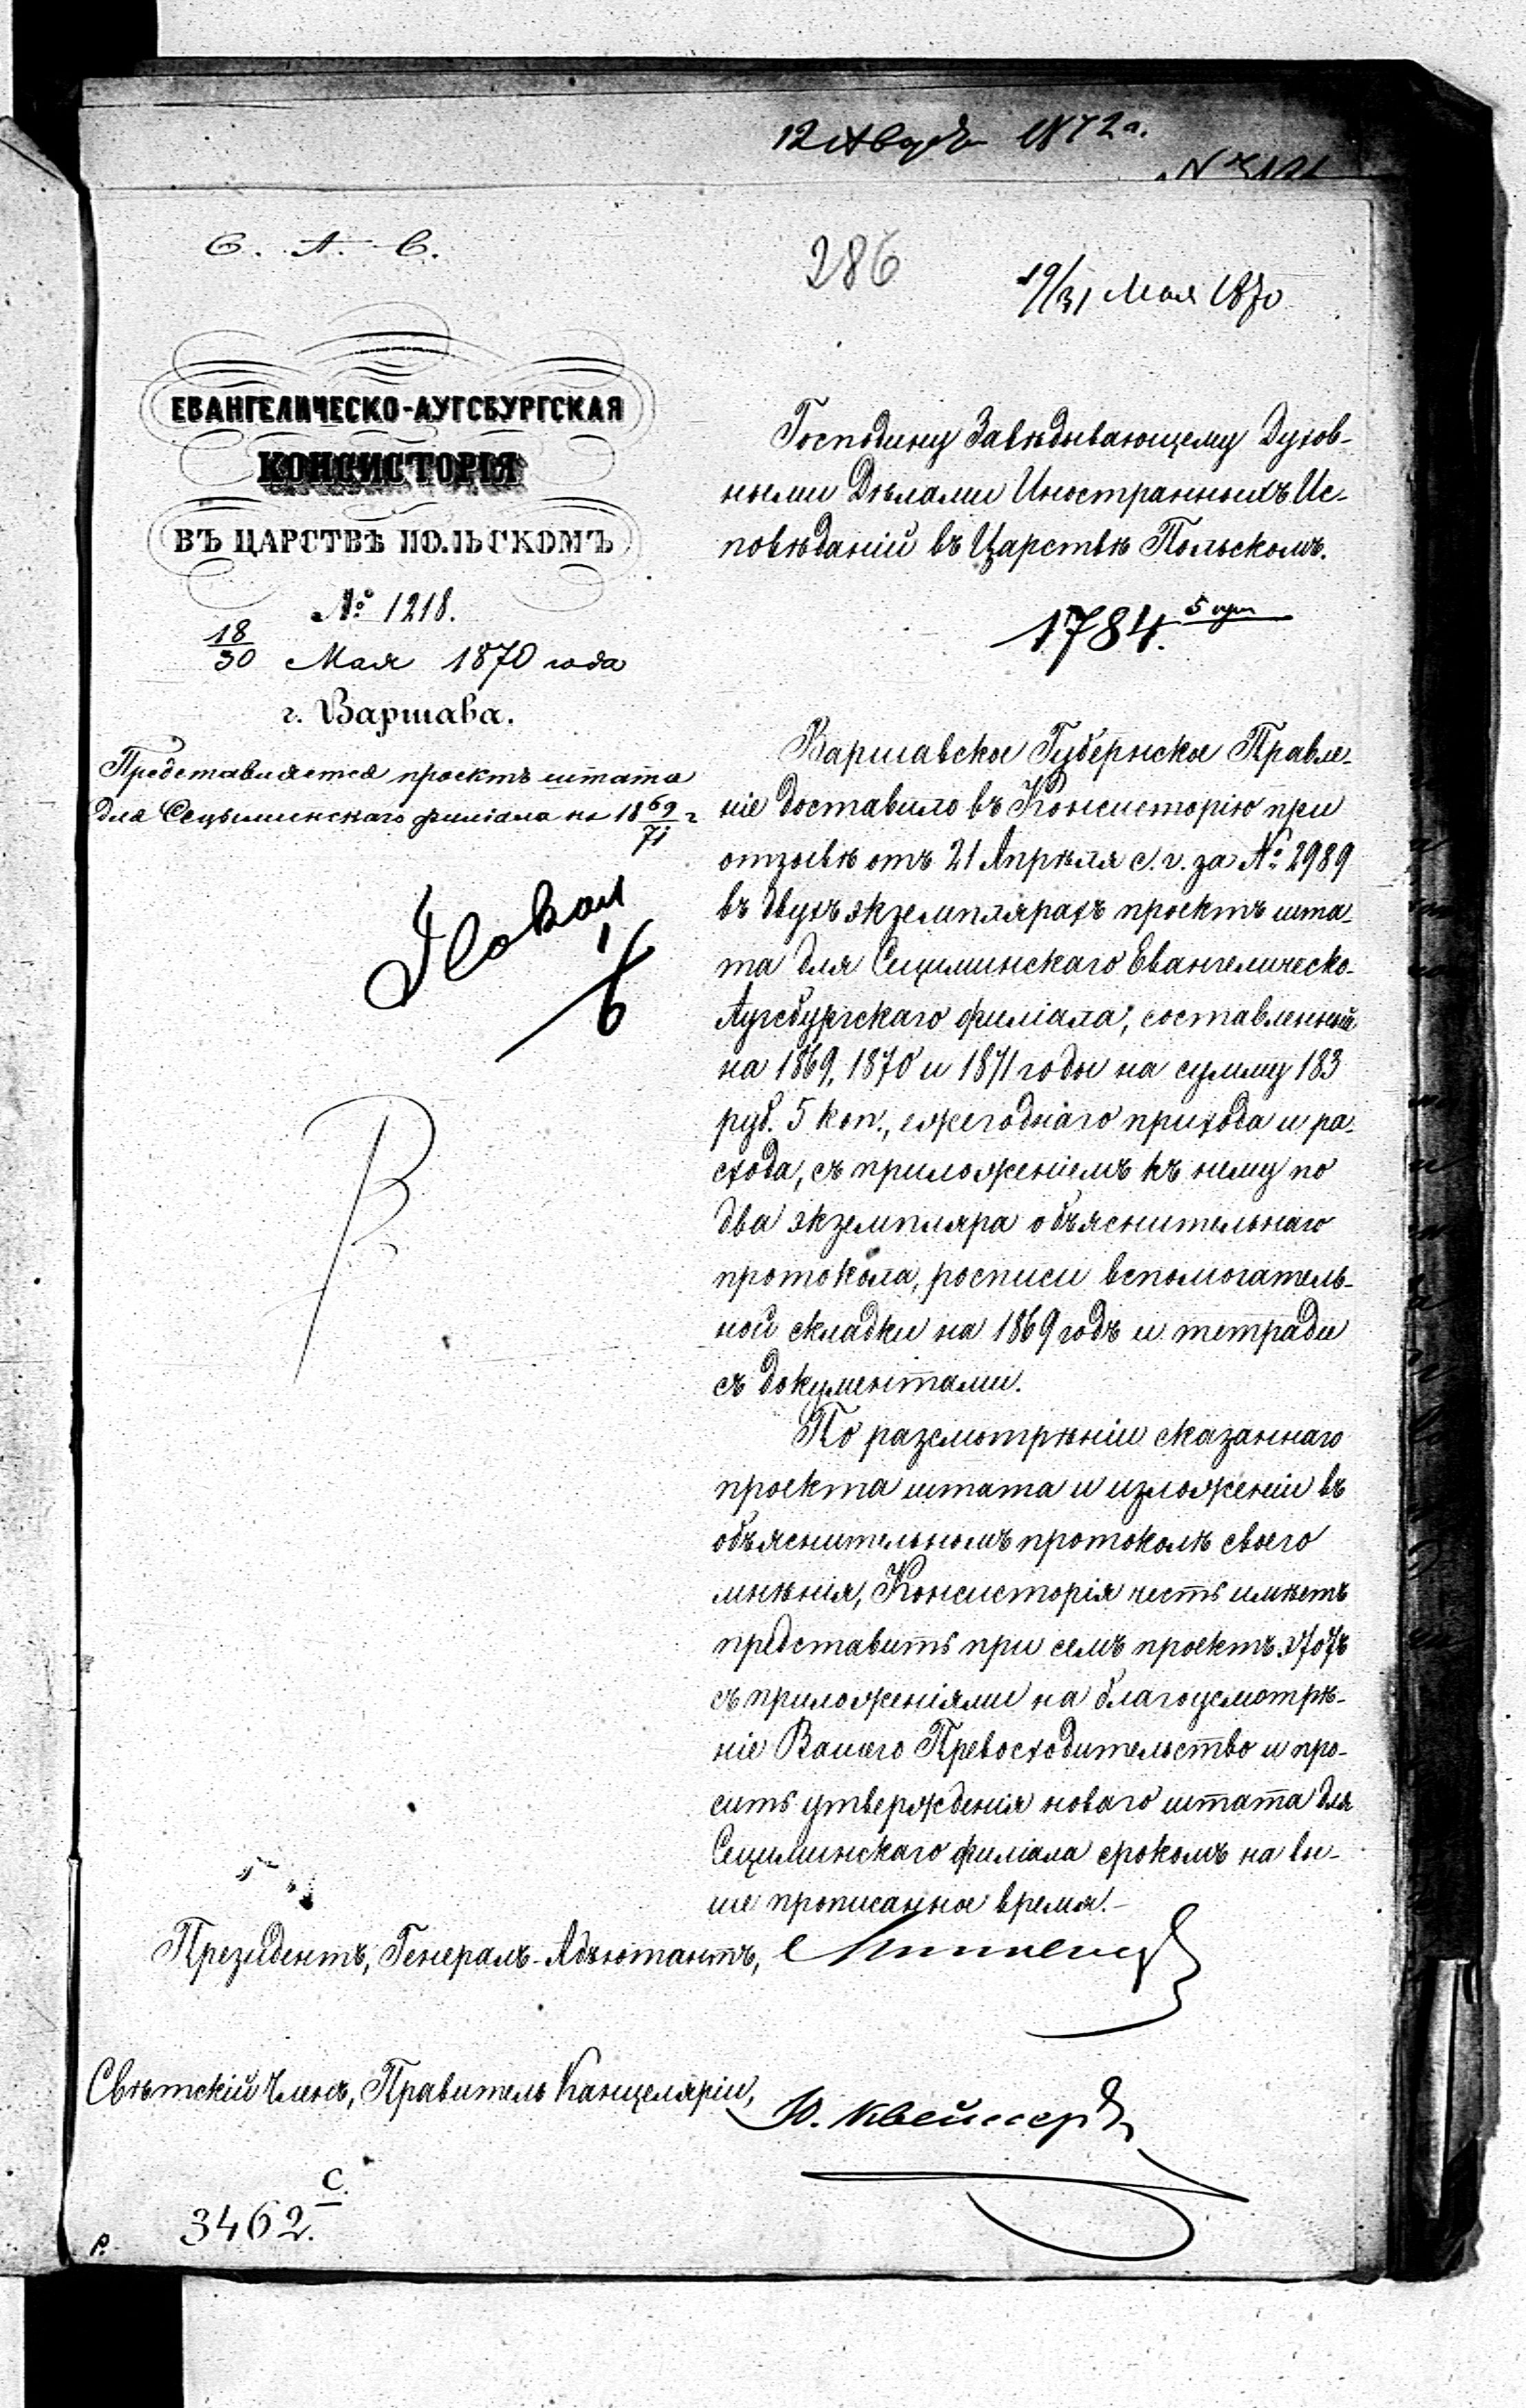 286
19/31 Мая 1870
С. А. С.
ЕВАНГЕЛИЧЕСКО-АУГСБУРГСКАЯ
КОНСИСТОРІЯ
ВЪ ЦАРСТВѢ ПОЛЬСКОМЪ
№ 1218.
18/30 Мая 1870 года
г. Варшава.
Представляется проектъ штата
для Сецыминскаго филіала на 1869/71 г
Господину Завѣдывающему Духов-
ными Дѣлами Иностранныхъ Ис-
повѣданій въ Царствѣ Польскомъ.
1784.
Варшавское Губернское Правле-
ніе доставило въ Консисторію при
отзывѣ отъ 21 Апрѣля с. г. за № 2989
въ двухъ экземплярахъ проектъ шта-
та для Сецыминскаго Евангелическо-
Аугсбургскаго филіала, составленный
на 1869, 1870 и 1871 годы на сумму 183
руб. 5 коп., ежегоднаго прихода и ра-
схода, съ приложеніемъ къ нему по
два экземпляра объяснительнаго
протокола, росписи вспомогатель-
ной складки на 1869 годъ и тетради
съ документами.
По разсмотрѣніи сказаннаго
проекта штата и изложеніи въ
объяснительномъ протоколѣ своего
мнѣнія, Консисторія честь имѣетъ
представить при семъ проектъ
съ приложеніями на благоусмотрѣ-
ніе Вашего Превосходительство и про-
сить утвержденія новаго штата для
Сецыминскаго филіала срокомъ на вы-
ше прописанное время.-
Президентъ, Генералъ-Адъютантъ,
Свѣтскій Членъ, Правитель Канцеляріи,
3462. С.